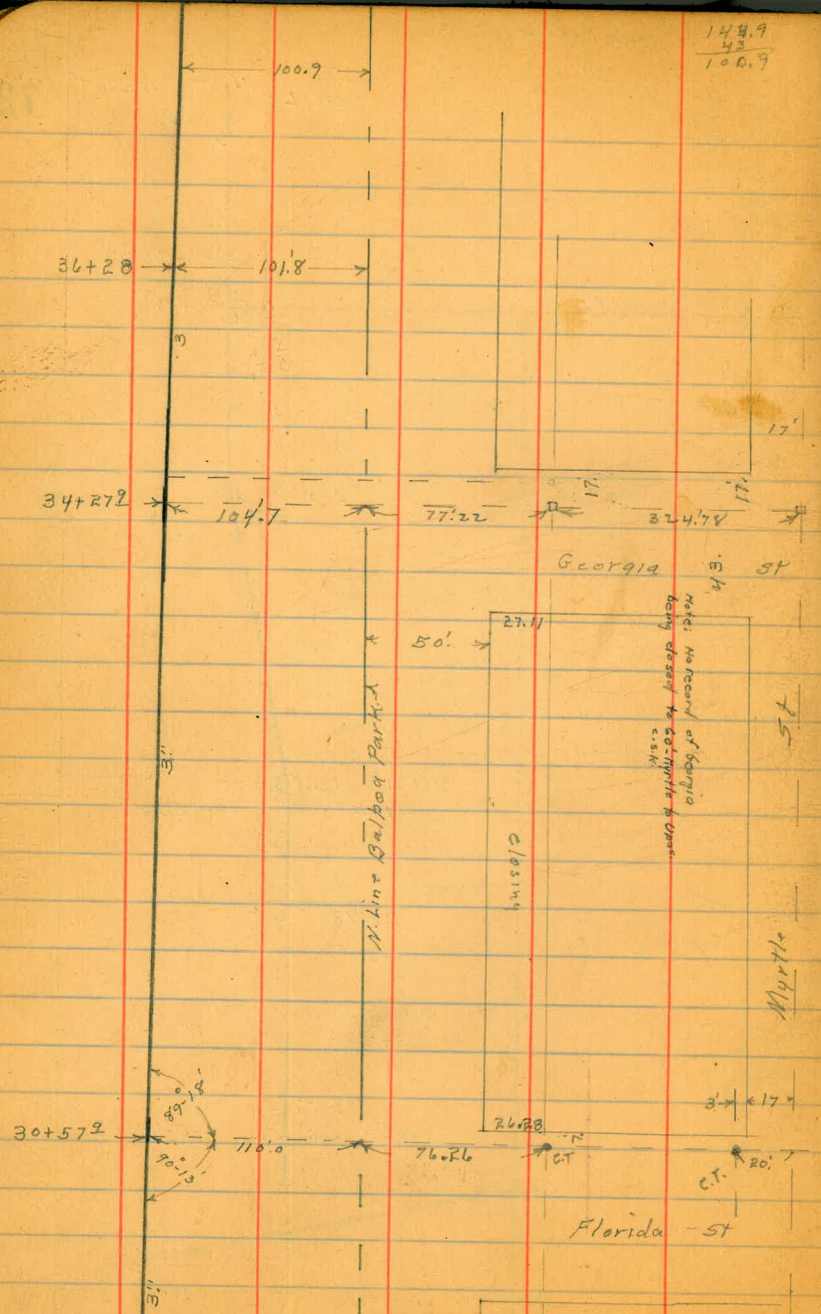 144.9
43
100.9
100.9
36+28
101.8
3
17'
34+27⁹
104.7
77.22
17.
17.
324.78
Georgia St
43.
27.11
50'
Note: No record of Georgia
being closed to 60'-Myrtle to Upas.
C.S.K.
St
Myrtle
3"
N. Line Balboa Park
closing
89°-18'
90°-13'
30+57⁹
110.0
76.26
26.28
7.
C.T.
3'
17
C.T.
20'
Florida St
3"